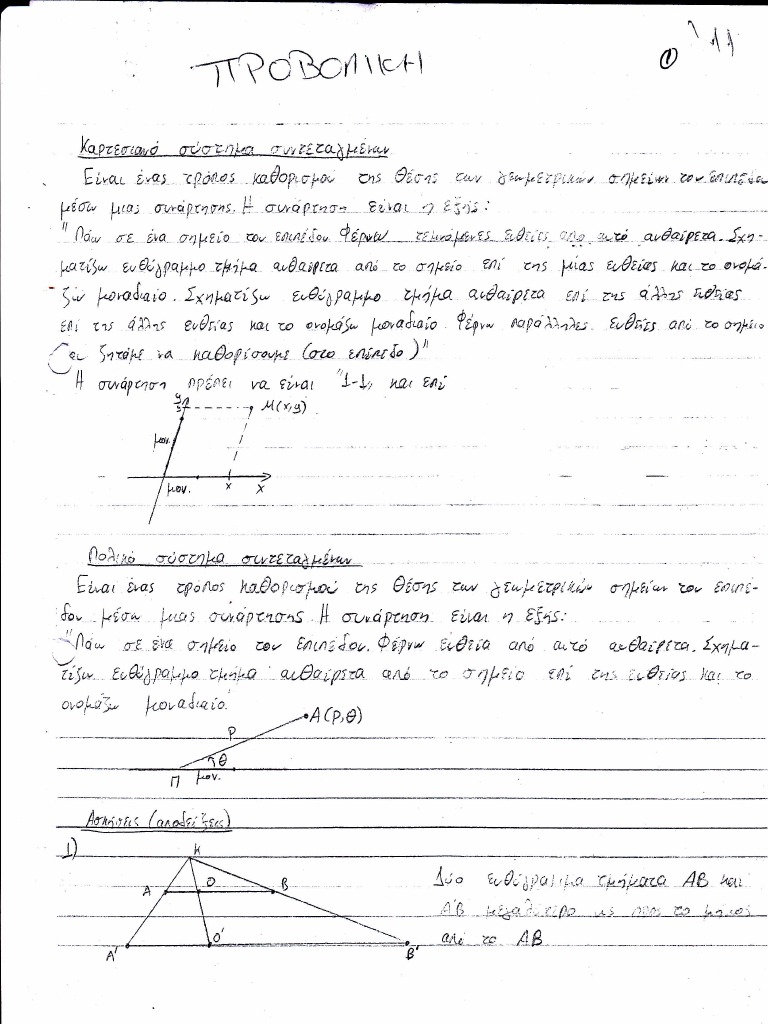 ΠΡΟΒΟΛΙΚΗ
① 11
Καρτεσιανό σύστημα συντεταγμένων
Είναι ένας τρόπος καθορισμού της θέσης των γεωμετρικών σημείων του επιπέδου
μέσω μιας συνάρτησης. Η συνάρτηση είναι η εξής:
"Πάω σε ένα σημείο του επιπέδου. Φέρνω τεμνόμενες ευθείες από αυτό αυθαίρετα. Σχη-
ματίζω ευθύγραμμο τμήμα αυθαίρετα από το σημείο επί της μίας ευθείας και το ονομά-
ζω μοναδιαίο. Σχηματίζω ευθύγραμμο τμήμα αυθαίρετα επί της άλλης ευθείας
επί της άλλης ευθείας και το ονομάζω μοναδιαίο. Φέρνω παράλληλες ευθείες από το σημείο
ζητάμε να καθορίσουμε (στο επίπεδο)"
Η συνάρτηση πρέπει να είναι "1-1" και επί
y
y
M(x,y)
μον.
μον.
x
x
Πολικό σύστημα συντεταγμένων
Είναι ένας τρόπος καθορισμού της θέσης των γεωμετρικών σημείων του επιπέ-
δου μέσω μιας συνάρτησης. Η συνάρτηση είναι η εξής:
"Πάω σε ένα σημείο του επιπέδου. Φέρνω ευθεία από αυτό αυθαίρετα. Σχημα-
τίζω ευθύγραμμο τμήμα αυθαίρετα από το σημείο επί της ευθείας και το
ονομάζω μοναδιαίο.
A(ρ,θ)
ρ
θ
Π μον.
Ασκήσεις (αποδείξεις)
1)
K
A O B
A' O' B'
Δύο ευθύγραμμα τμήματα AB και
A'B' μεγαλύτερο ως προς το μήκος
από το AB